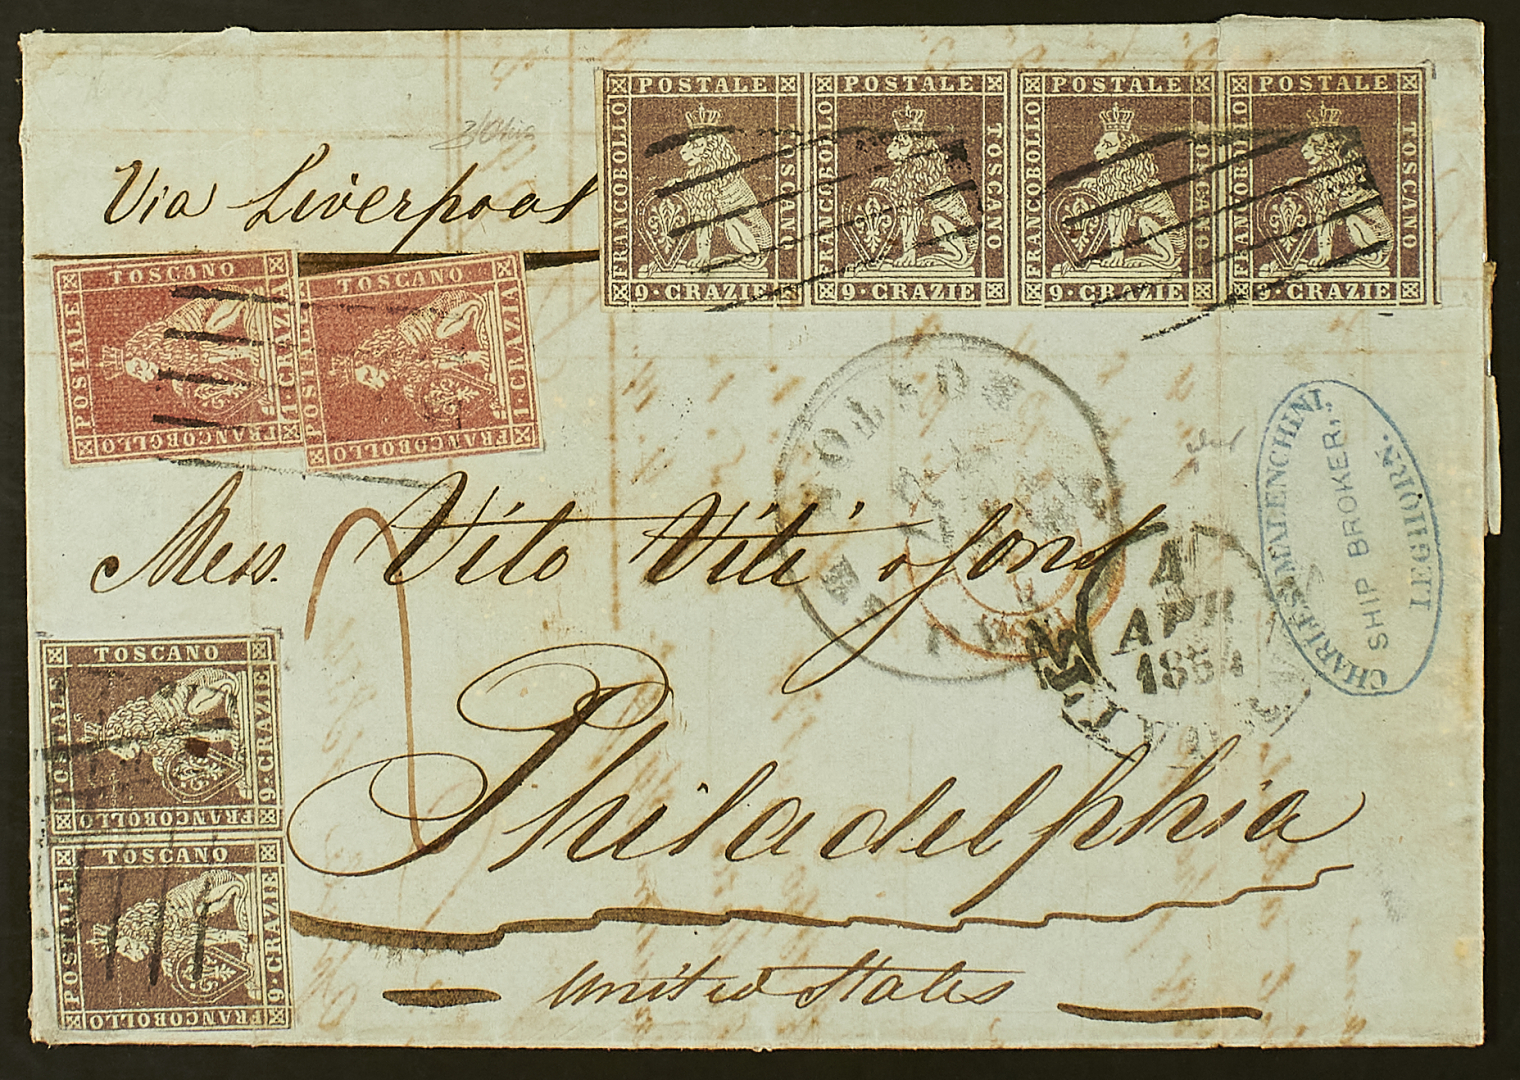 Via Liverpool
POSTALE
FRANCOBOLLO
TOSCANO
9·CRAZIE
POSTALE
FRANCOBOLLO
TOSCANO
9·CRAZIE
POSTALE
FRANCOBOLLO
TOSCANO
9·CRAZIE
POSTALE
FRANCOBOLLO
TOSCANO
9·CRAZIE
TOSCANO
POSTALE
1·CRAZIA
FRANCOBOLLO
TOSCANO
POSTALE
1·CRAZIA
FRANCOBOLLO
BOSTON
CHARLES MAPENCHINI,
SHIP BROKER,
LEGHORN.
Mess. Vito Viti & Sons
4
APR
1854
Philadelphia
United States
TOSCANO
POSTALE
9·CRAZIE
FRANCOBOLLO
TOSCANO
POSTALE
9·CRAZIE
FRANCOBOLLO